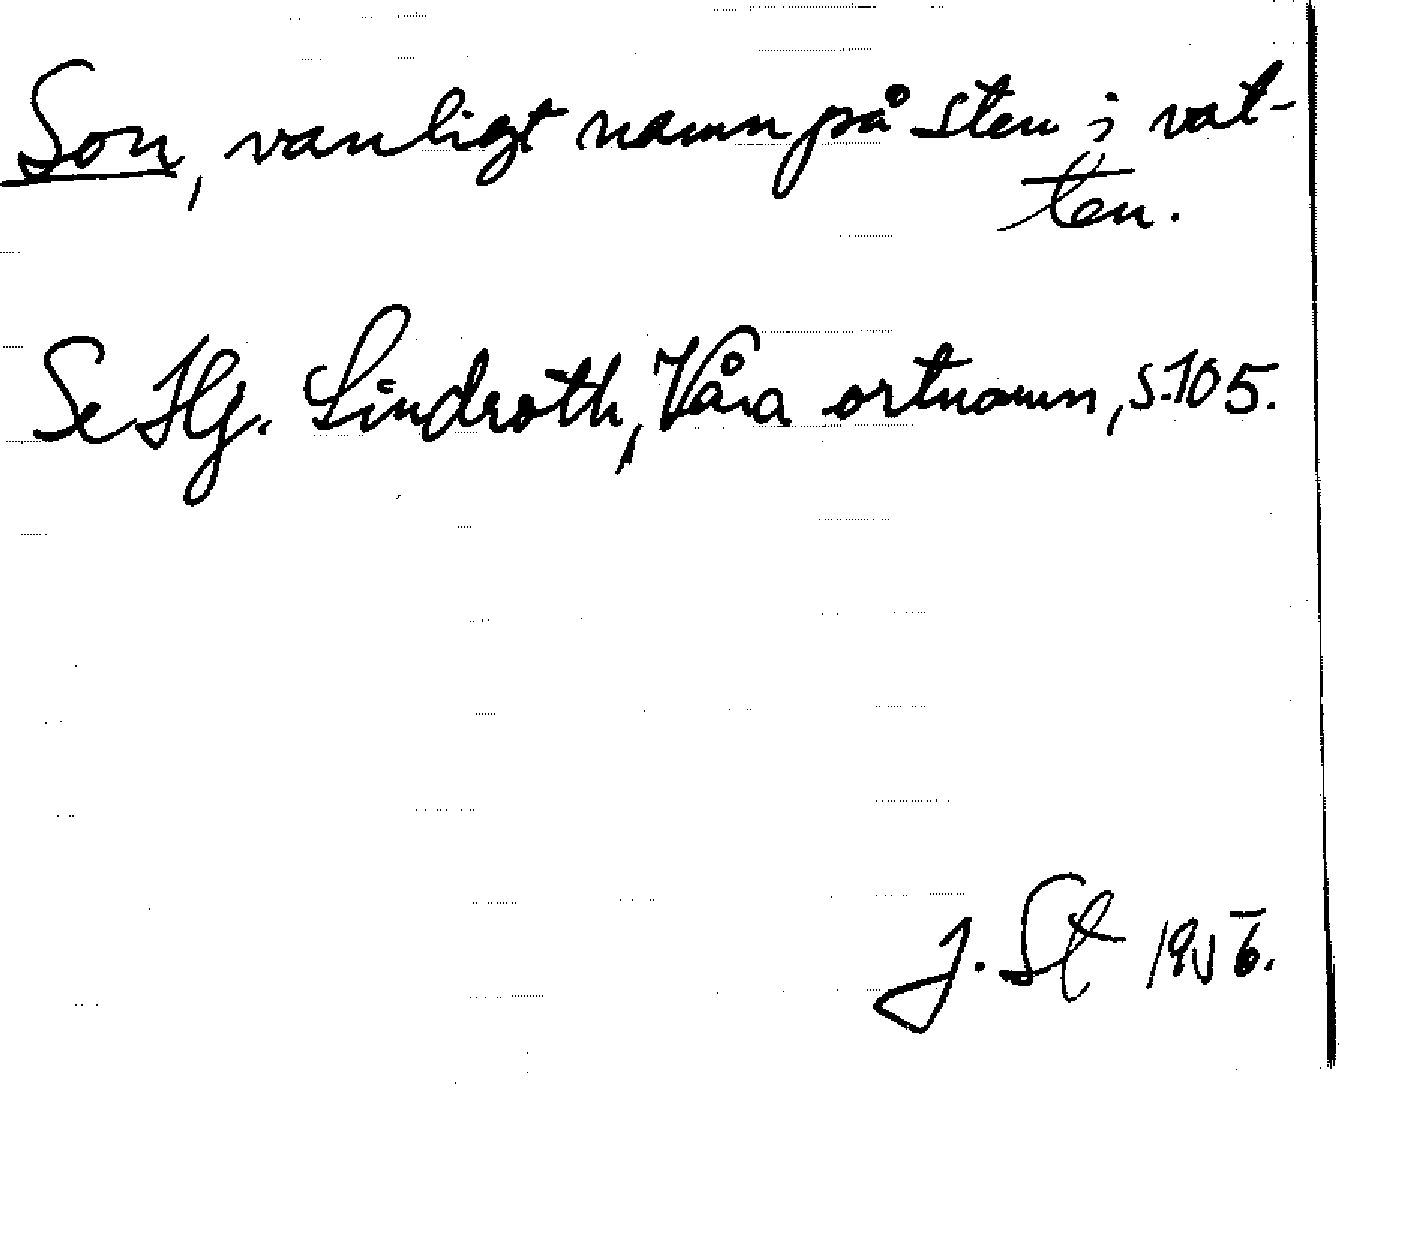 Son, vanligt namn på sten i vat-
ten.
Se Hj. Lindroth, Våra ortnamn, s. 105.
J. St 1956.